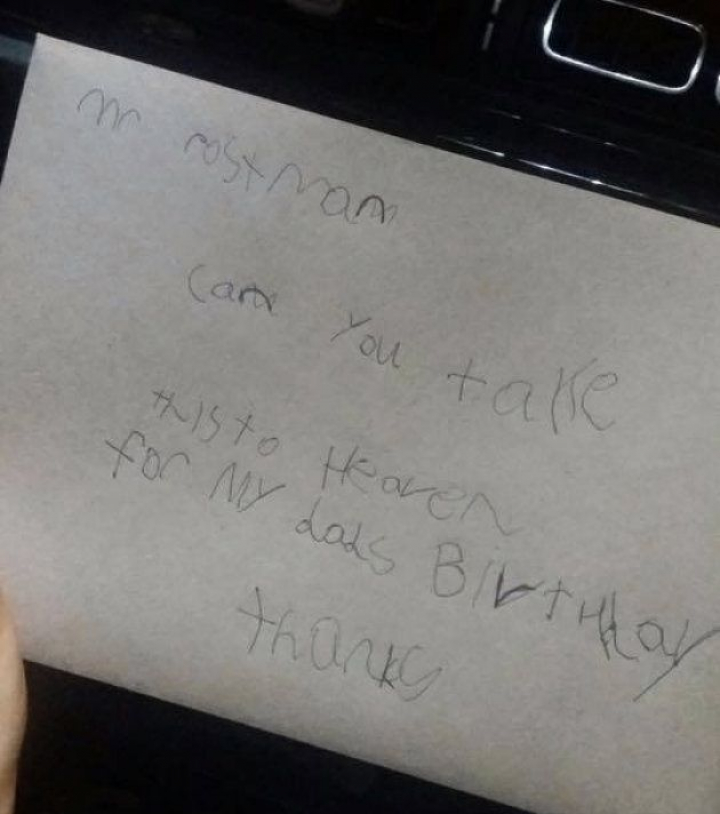 mr Postman
can you take
this to Heaven
for my dads Birthday
thanks